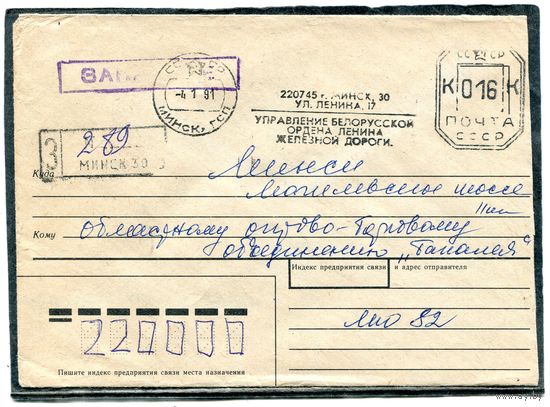 ЗАК
СССР
-4 1 91
МИНСК, ГСП
220745 г. МИНСК, 30
УЛ. ЛЕНИНА, 17
УПРАВЛЕНИЕ БЕЛОРУССКОЙ
ОРДЕНА ЛЕНИНА
ЖЕЛЕЗНОЙ ДОРОГИ.
СССР
К 016 К
ПОЧТА
СССР
З
289
МИНСК 30
Куда
Минск
Могилевское шоссе
11 км
Кому
Областному оптово-торговому
объединению „Бакалея"
Индекс предприятия связи
и адрес отправителя
220000
Пишите индекс предприятия связи места назначения